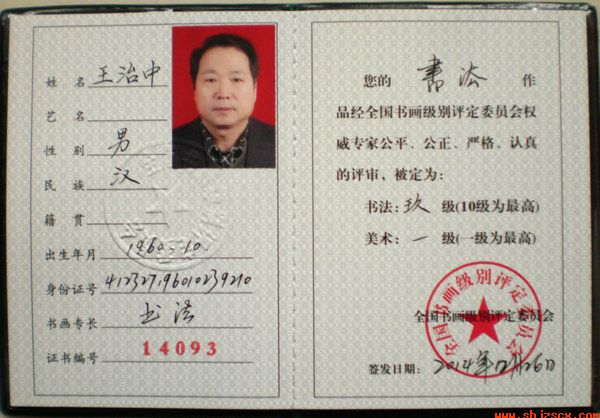 姓名 王治中
艺名
性别 男
民族 汉
籍贯
出生年月 1960-10.
身份证号 412327196010239210
书画专长 书法
证书编号 14093
您的 书法 作
品经全国书画级别评定委员会权
威专家公平、公正、严格、认真
的评审，被定为：
书法：玖 级(10级为最高)
美术：一 级(一级为最高)
全国书画级别评定委员会
全国书画级别评定委员会
签发日期：2014年12月26日
www.shjzscx.com